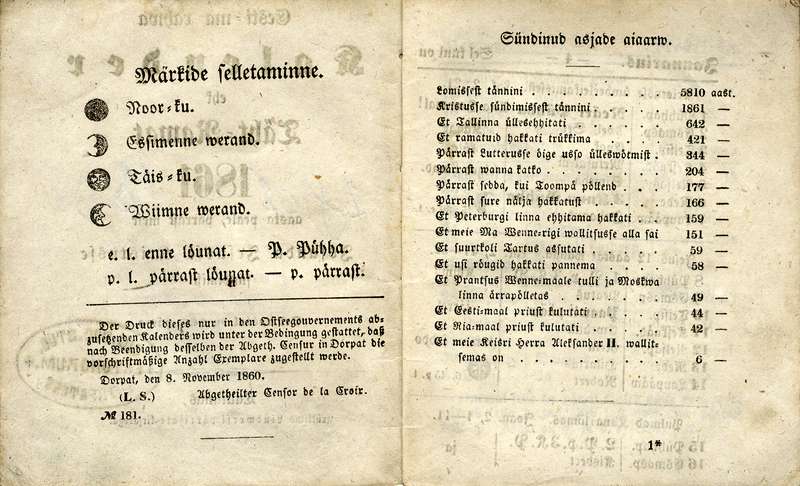 Märkide selletaminne.
Noor-ku.
Essimenne werand.
Täis-ku.
Wiimne werand.
e. l. enne lõunat. — P. Pühha.
p. l. pärrast lõunat. — p. pärrast.
Der Druck dieses nur in den Ostseegouvernements ab-
zusetzenden Kalenders wird unter der Bedingung gestattet, daß
nach Beendigung desselben der Abgeth. Censur in Dorpat die
vorschriftmäßige Anzahl Exemplare zugestellt werde.
Dorpat, den 8. November 1860.
(L. S.) Abgetheilter Censor de la Croix.
№ 181.
Sündinud asjade aiaarw.
Lomissest tännini . . . . . . . . 5810 aast.
Kristusse sündimissest tännini . . . . 1861 —
Et Tallinna üllesehhitati . . . . . 642 —
Et ramatuid hakkati trükkima . . . . 421 —
Pärrast Lutterusse õige usso ülleswõtmist . 344 —
Pärrast wanna katko . . . . . . . 204 —
Pärrast sedda, kui Toompä põllend . . . 177 —
Pärrast sure nälja hakkatust . . . . 166 —
Et Peterburgi linna ehhitama hakkati . . 159 —
Et meie Ma Wenne-rigi wallitsusse alla sai 151 —
Et suurtkoli Tartus assutati . . . . 59 —
Et usi rõugid hakkati pannema . . . . 58 —
Et Prantsus Wenne-maale tulli ja Moskwa
linna ärrapõlletas . . . . . . . 49 —
Et Eesti-maal priust kulutati . . . . 44 —
Et Ria-maal priust kulutati . . . . . 42 —
Et meie Keisri Herra Aleksander II. wallit-
semas on . . . . . . . . . 6 —
1*